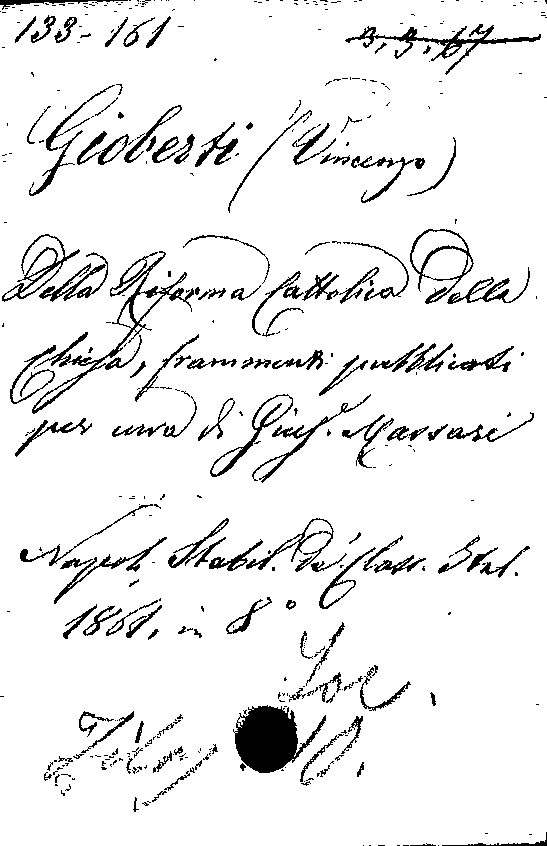 133-161 3.3.67
Gioberti (Vincenzo)
Della Riforma Cattolica della
Chiesa, frammenti pubblicati
per cura di Gius.e Massari
Napoli Stabil. de' Class. Ital.
1861, in 8°